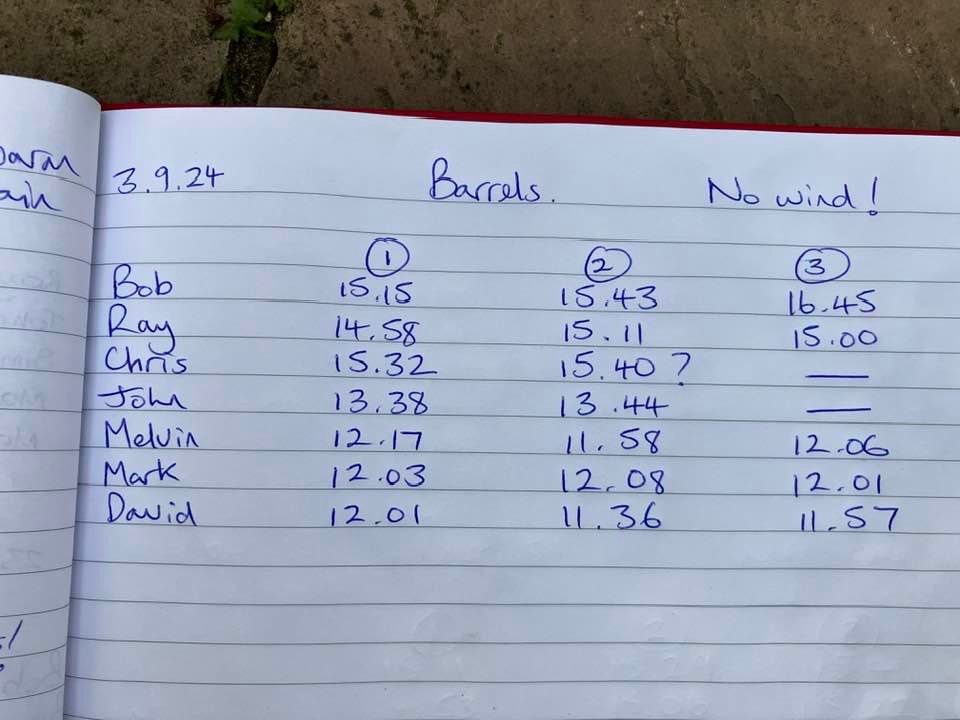 3.9.24 Barrels. No wind!
1 2 3
Bob 15.15 15.43 16.45
Ray 14.58 15.11 15.00
Chris 15.32 15.40 ? —
John 13.38 13.44 —
Melvin 12.17 11.58 12.06
Mark 12.03 12.08 12.01
David 12.01 11.36 11.57